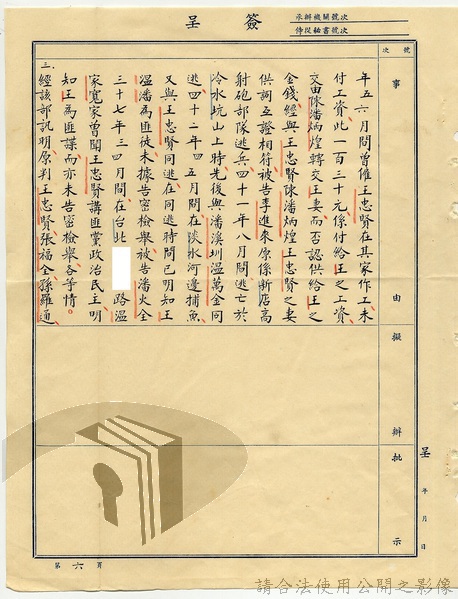 簽呈
承辦機關號次
侍從秘書號次
號次
事由
擬辦
批示
年五六月間曾僱王忠賢在其家作工未
付工資此一百三十元係付給王之工資
交由陳潘炳煌轉交王妻而否認供給王之
金錢經與王忠賢陳潘炳煌王忠賢之妻
供詞互證相符被告李進來原係新店高
射砲部隊逃兵四十一年八月間逃亡於
冷水坑山上時先後與潘溪圳溫萬金同
逃四十二年四五月間在淡水河邊捕魚
又與王忠賢同逃在同逃時間已明知王
溫潘為匪徒未據告密檢舉被告潘火全
三十七年三四月間在台北 路溫
家寬家曾聞王忠賢講匪黨政治民主明
知王為匪諜而亦未告密檢舉各等情。
三、經該部訊明原判王忠賢張福全孫羅通
呈 年 月 日
第六頁
請合法使用公開之影像